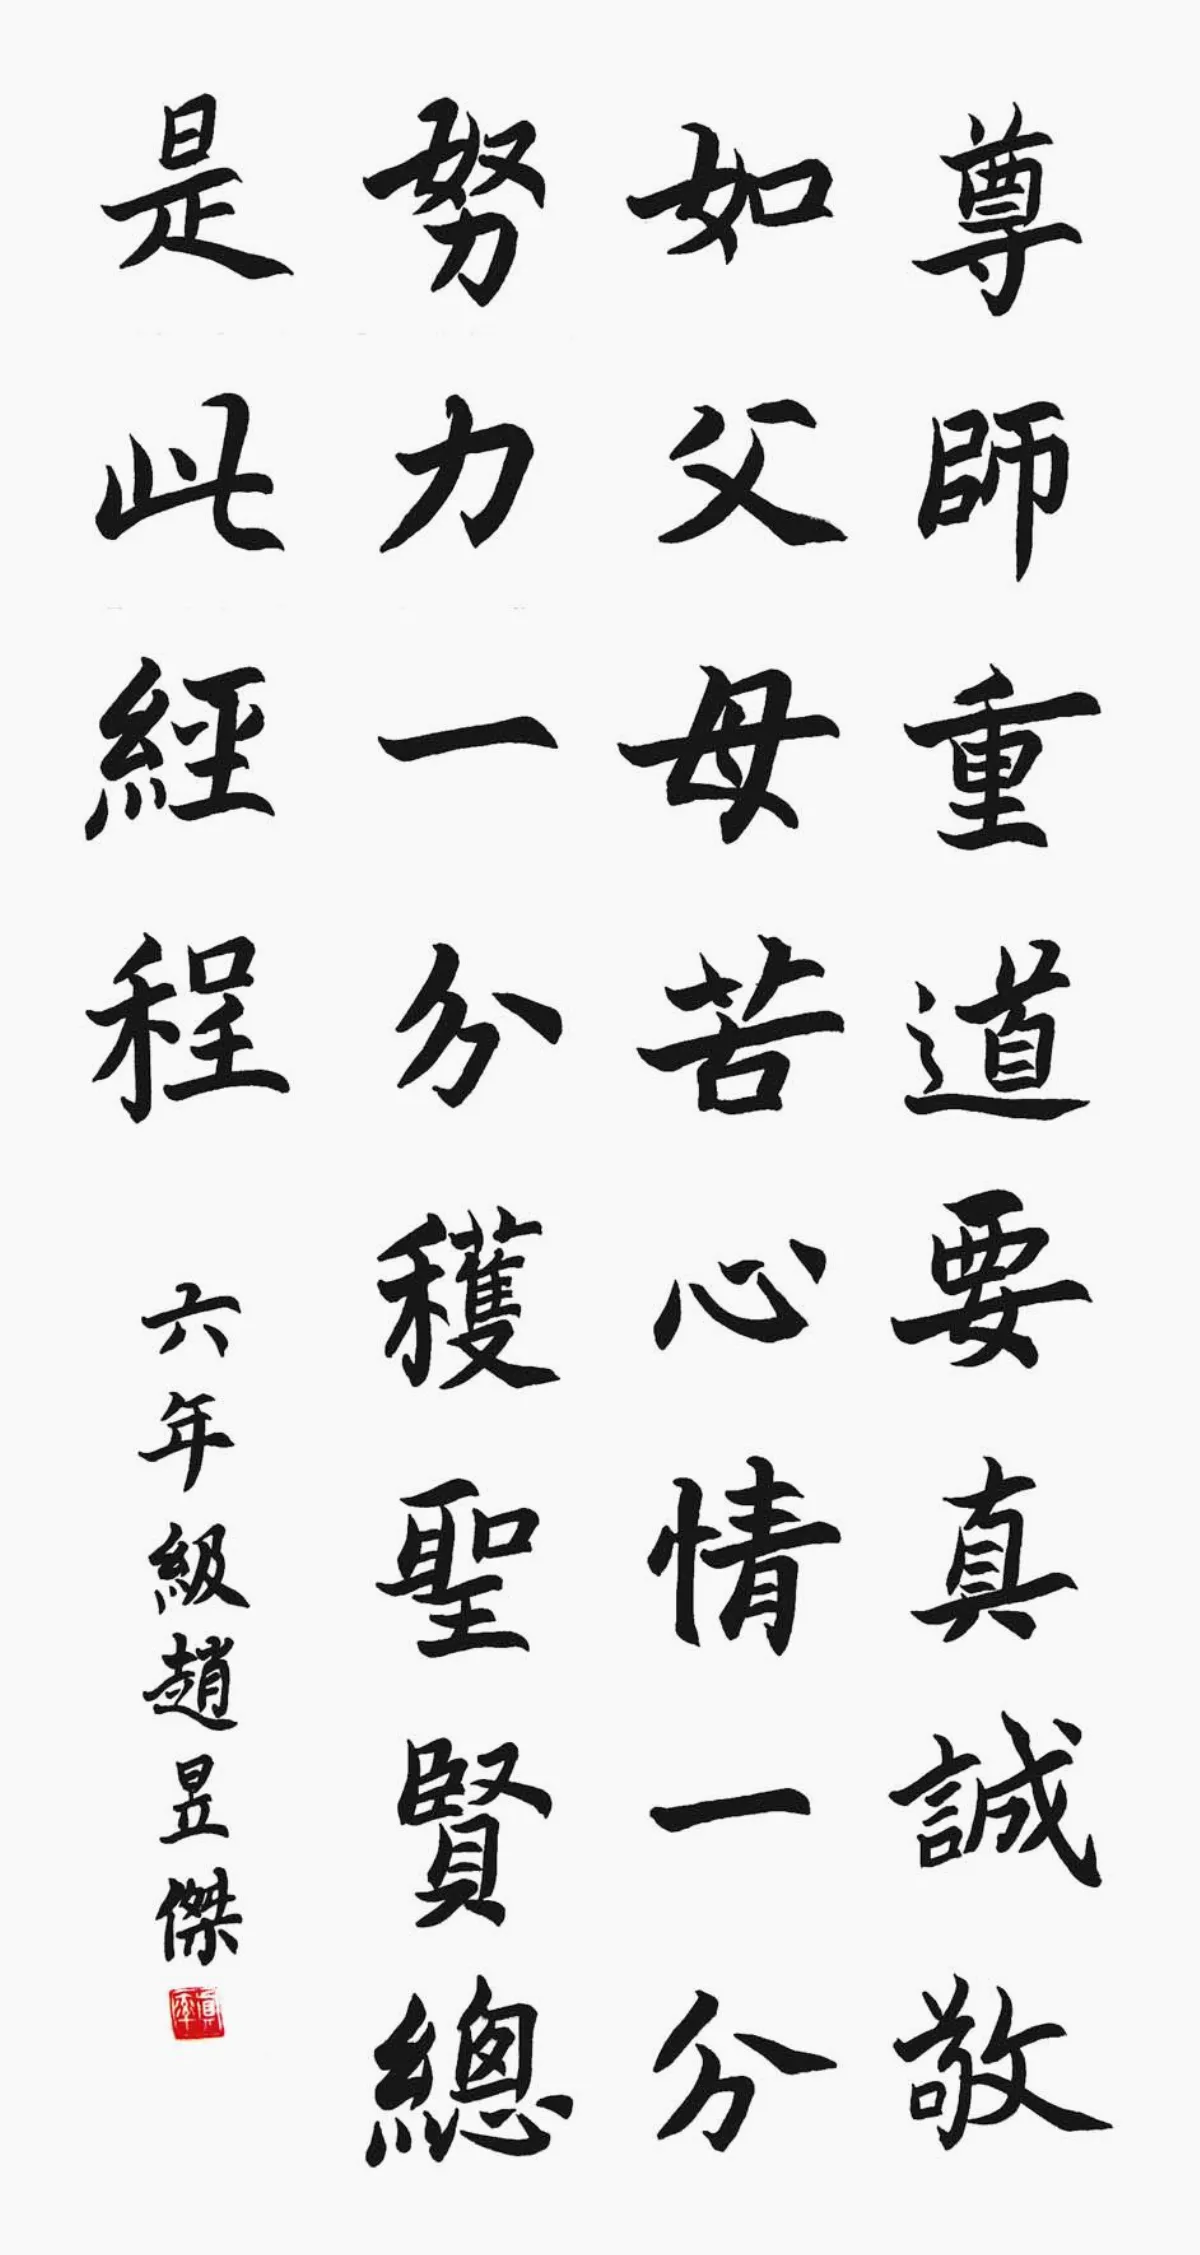 尊師重道要真誠敬
如父母苦心情一分
努力一分穫聖賢總
是此經程
六年級趙昱傑